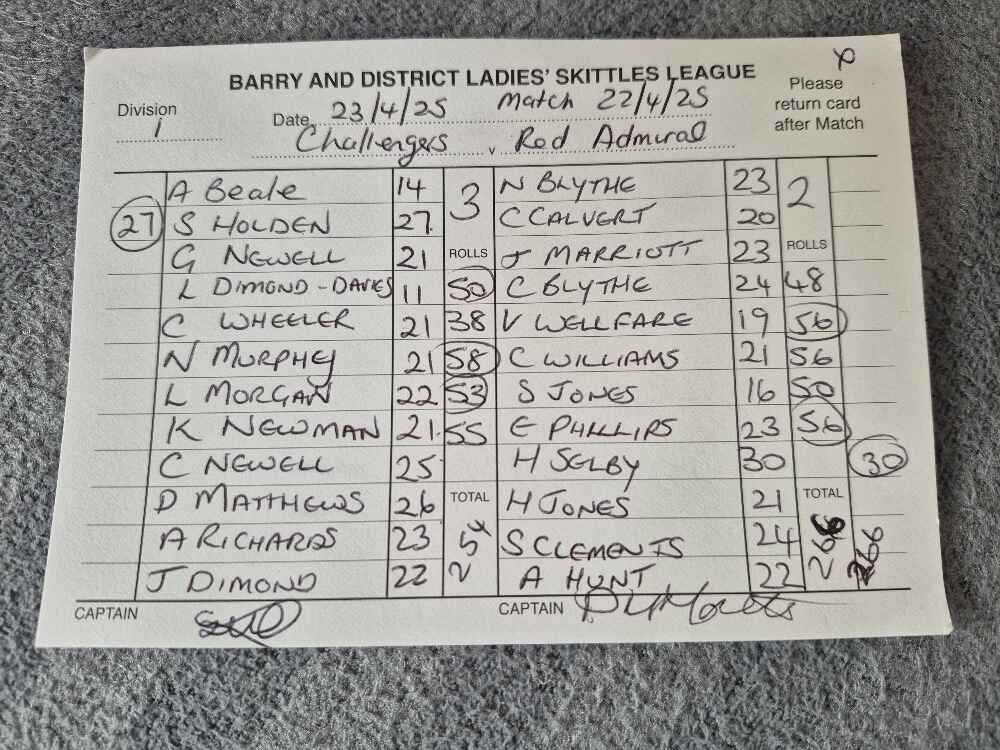 BARRY AND DISTRICT LADIES' SKITTLES LEAGUE
Division 1
Date 23/4/25 Match 22/4/25
Please return card after Match
Challengers v Red Admiral
A Beale 14 3 N BLYTHE 23 2
27 S HOLDEN 27 C CALVERT 20
G NEWELL 21 ROLLS J MARRIOTT 23 ROLLS
L DIMOND-DAVIES 11 50 C BLYTHE 24 48
C WHEELER 21 38 V WELLFARE 19 56
N MURPHEY 21 58 C WILLIAMS 21 56
L MORGAN 22 53 S JONES 16 50
K NEWMAN 21 55 E PHILLIPS 23 56
C NEWELL 25 H SELBY 30 30
D MATTHEWS 26 TOTAL H JONES 21 TOTAL
A RICHARDS 23 254 S CLEMENTS 24 266 266
J DIMOND 22 A HUNT 22
CAPTAIN CAPTAIN